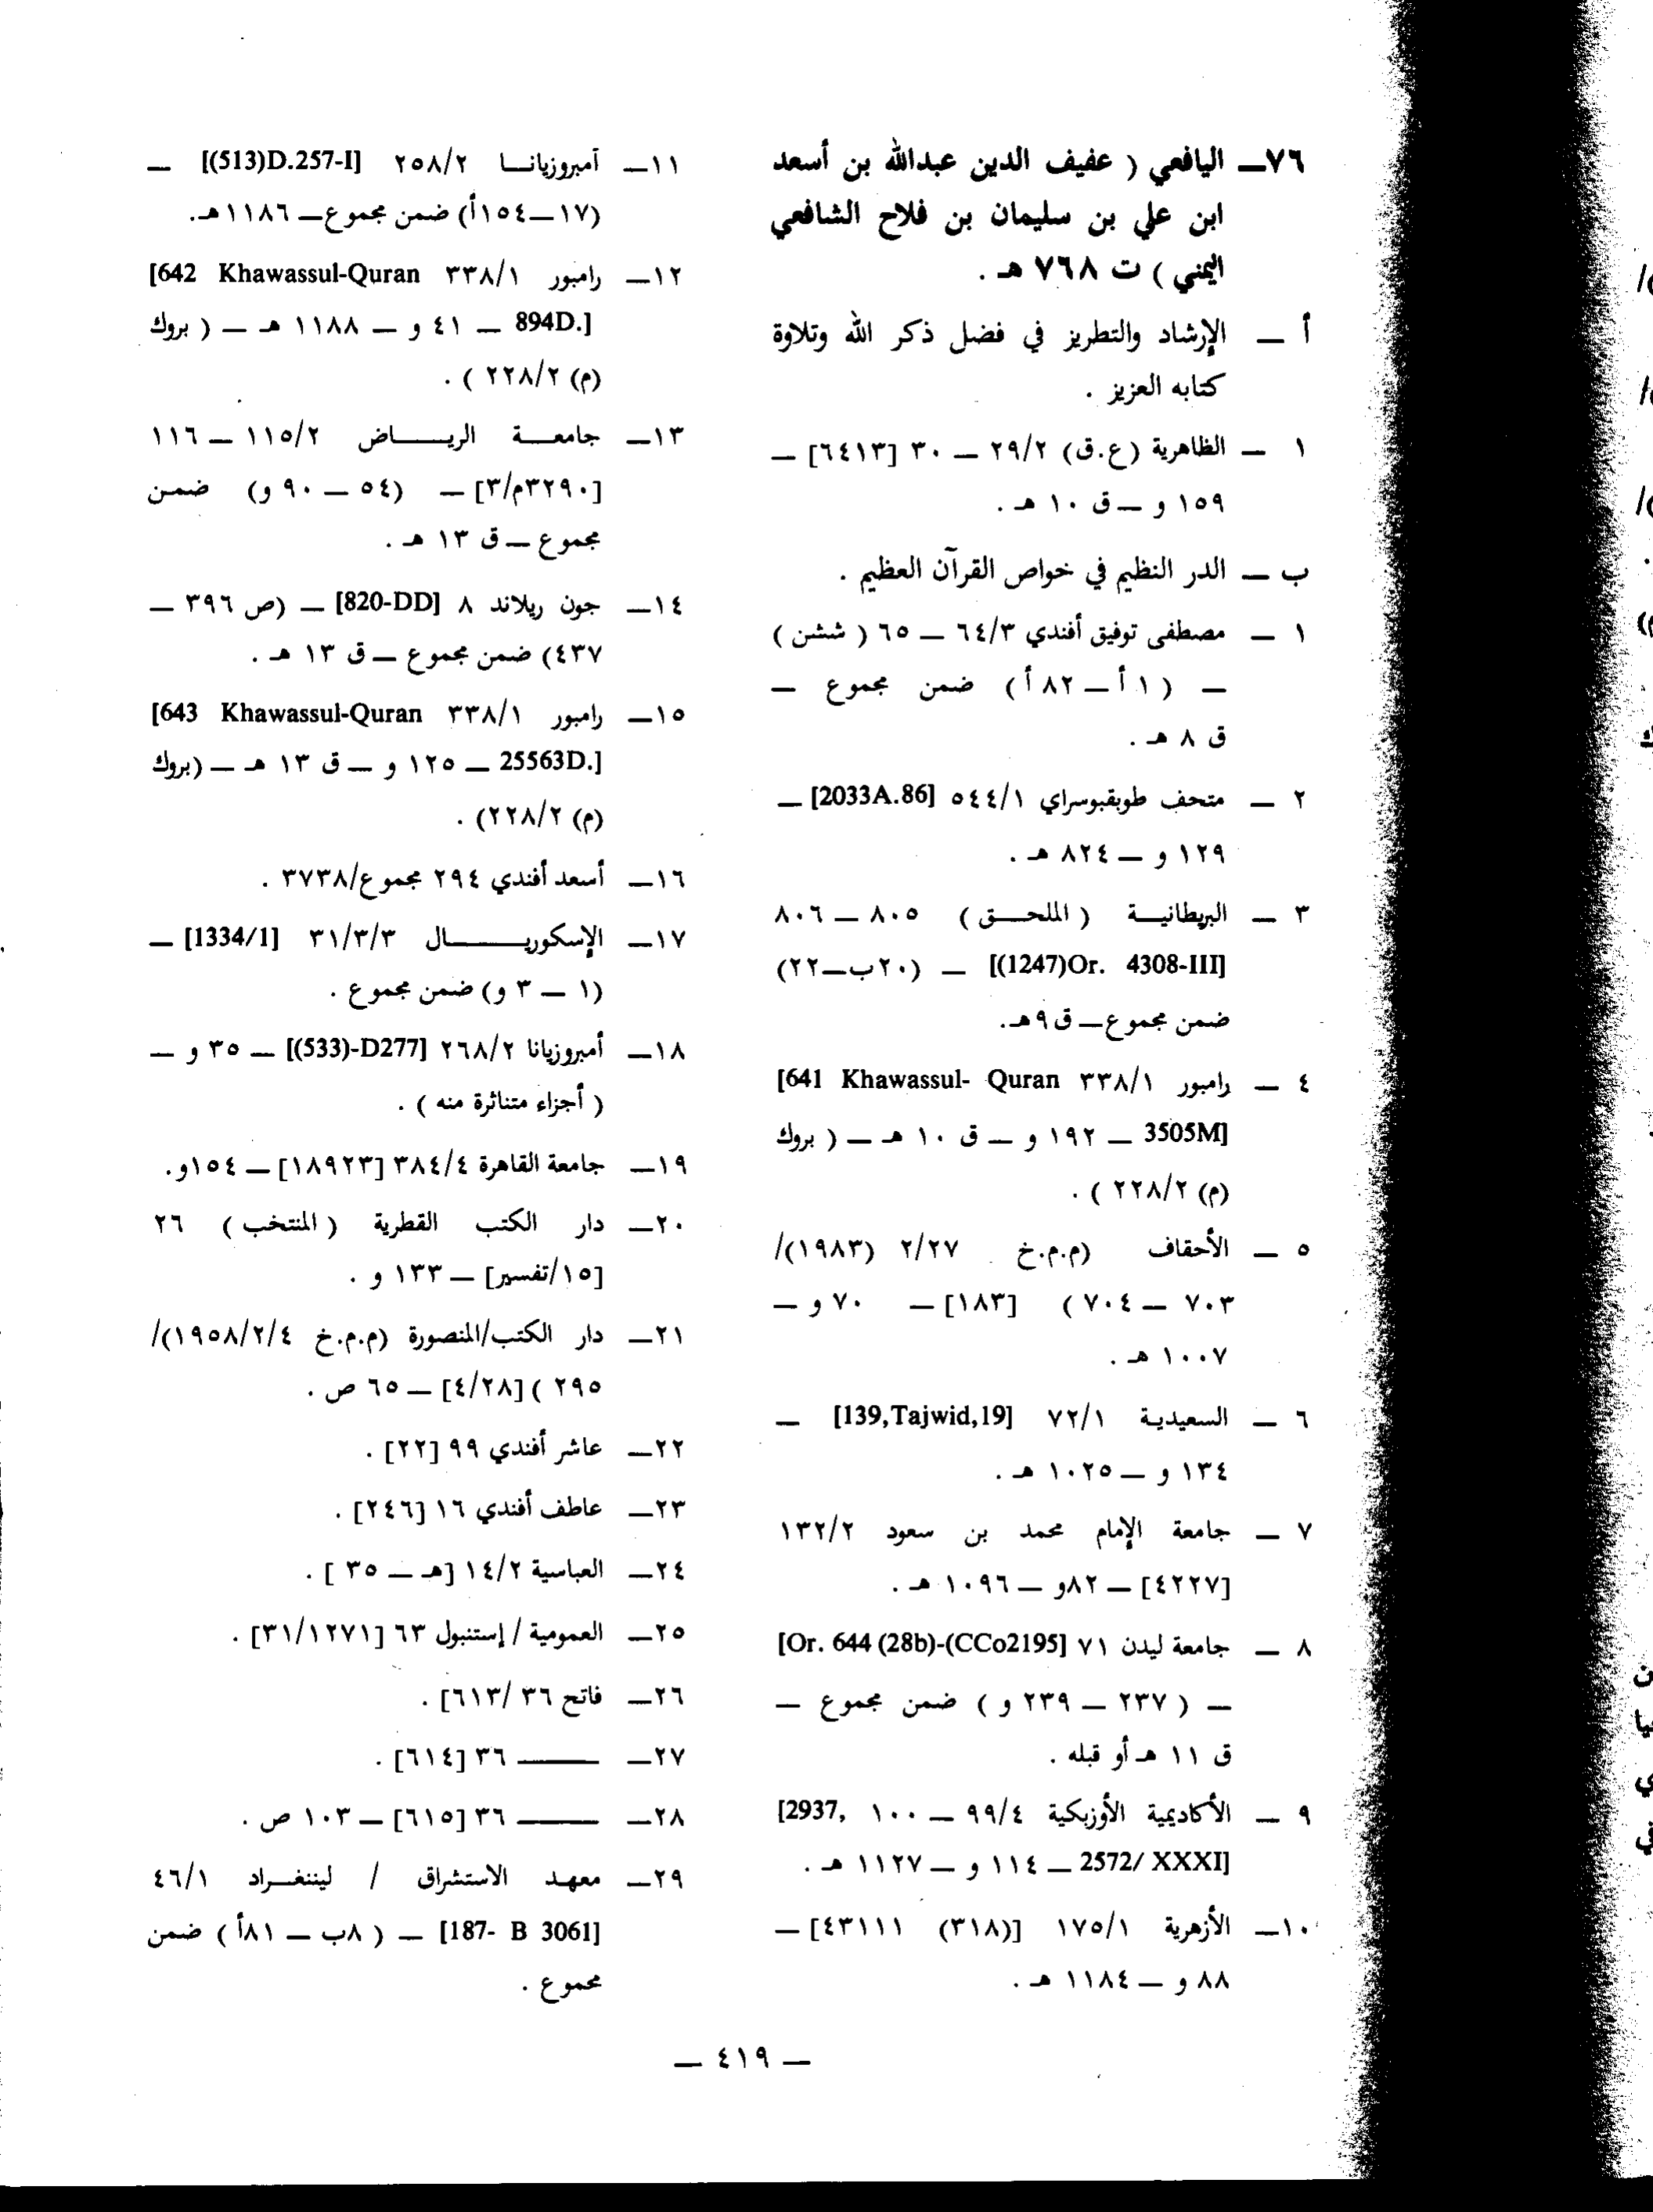 ٧٦ــ اليافعي ( عفيف الدين عبدالله بن أسعد
ابن علي بن سليمان بن فلاح الشافعي
اليمني ) ت ٧٦٨ هـ .
أ ــ الإرشاد والتطريز في فضل ذكر الله وتلاوة
كتابه العزيز .
١ ــ الظاهرية (ع.ق) ٢٩/٢ ــ ٣٠ [٦٤١٣] ــ
١٥٩ و ــ ق ١٠ هـ .
ب ــ الدر النظيم في خواص القرآن العظيم .
١ ــ مصطفى توفيق أفندي ٦٤/٣ ــ ٦٥ ( ششن )
ــ ( ١ أ ــ ٨٢ أ ) ضمن مجموع ــ
ق ٨ هـ .
٢ ــ متحف طوبقبوسراي ٥٤٤/١ [2033A.86] ــ
١٢٩ و ــ ٨٢٤ هـ .
٣ ــ البريطانيـة ( الملحـق ) ٨٠٥ ــ ٨٠٦
[(1247)Or. 4308-III] ــ (٢٠ب ــ ٢٢)
ضمن مجموع ــ ق ٩هـ.
٤ ــ رامبور ٣٣٨/١ [641 Khawassul- Quran
3505M] ــ ١٩٢ و ــ ق ١٠ هـ ــ ( بروك
(م) ٢٢٨/٢ ) .
٥ ــ الأحقاف (م.م.خ ٢/٢٧ (١٩٨٣)/
٧٠٣ ــ ٧٠٤ ) [١٨٣] ــ ٧٠ و ــ
١٠٠٧ هـ .
٦ ــ السعيدية ٧٢/١ [139,Tajwid,19] ــ
١٣٤ و ــ ١٠٢٥ هـ .
٧ ــ جامعة الإمام محمد بن سعود ١٣٢/٢
[٤٢٢٧] ــ ٨٢و ــ ١٠٩٦ هـ .
٨ ــ جامعة ليدن ٧١ [Or. 644 (28b)-(CCo2195]
ــ ( ٢٣٧ ــ ٢٣٩ و ) ضمن مجموع ــ
ق ١١ هـ أو قبله .
٩ ــ الأكاديمية الأوزبكية ٩٩/٤ ــ ١٠٠ [2937,
2572/ XXXI] ــ ١١٤ و ــ ١١٢٧ هـ .
١٠ــ الأزهرية ١٧٥/١ [(٣١٨) ٤٣١١١] ــ
٨٨ و ــ ١١٨٤ هـ .
١١ــ آمبروزيانـا ٢٥٨/٢ [(513)D.257-I] ــ
(١٧ــ١٥٤أ) ضمن مجموع ــ ١١٨٦هـ.
١٢ــ رامبور ٣٣٨/١ [642 Khawassul-Quran
894D.] ــ ٤١ و ــ ١١٨٨ هـ ــ ( بروك
(م) ٢٢٨/٢ ) .
١٣ــ جامعـة الريـاض ١١٥/٢ ــ ١١٦
[٣٢٩٠م/٣] ــ (٥٤ ــ ٩٠ و) ضمـن
مجموع ــ ق ١٣ هـ .
١٤ــ جون ريلاند ٨ [820-DD] ــ (ص ٣٩٦ ــ
٤٣٧) ضمن مجموع ــ ق ١٣ هـ .
١٥ــ رامبور ٣٣٨/١ [643 Khawassul-Quran
25563D.] ــ ١٢٥ و ــ ق ١٣ هـ ــ (بروك
(م) ٢٢٨/٢) .
١٦ــ أسعد أفندي ٢٩٤ مجموع/٣٧٣٨ .
١٧ــ الإسكوريـال ٣١/٣/٣ [1334/1] ــ
(١ ــ ٣ و) ضمن مجموع .
١٨ــ أمبروزيانا ٢٦٨/٢ [(533)-D277] ــ ٣٥ و ــ
( أجزاء متناثرة منه ) .
١٩ــ جامعة القاهرة ٣٨٤/٤ [١٨٩٢٣] ــ ١٥٤و.
٢٠ــ دار الكتب القطرية ( المنتخب ) ٢٦
[١٥/تفسير] ــ ١٣٣ و .
٢١ــ دار الكتب/المنصورة (م.م.خ ١٩٥٨/٢/٤)/
٢٩٥ ) [٤/٢٨] ــ ٦٥ ص .
٢٢ــ عاشر أفندي ٩٩ [٢٢] .
٢٣ــ عاطف أفندي ١٦ [٢٤٦] .
٢٤ــ العباسية ١٤/٢ [هـ ــ ٣٥ ] .
٢٥ــ العمومية / إستنبول ٦٣ [٣١/١٢٧١] .
٢٦ــ فاتح ٣٦ /٦١٣] .
٢٧ــ ــــــ ٣٦ [٦١٤] .
٢٨ــ ــــــ ٣٦ [٦١٥] ــ ١٠٣ ص .
٢٩ــ معهـد الاستشراق / ليننغـراد ٤٦/١
[187- B 3061] ــ ( ٨ب ــ ٨١أ ) ضمن
مجموع .
ــ ٤١٩ ــ